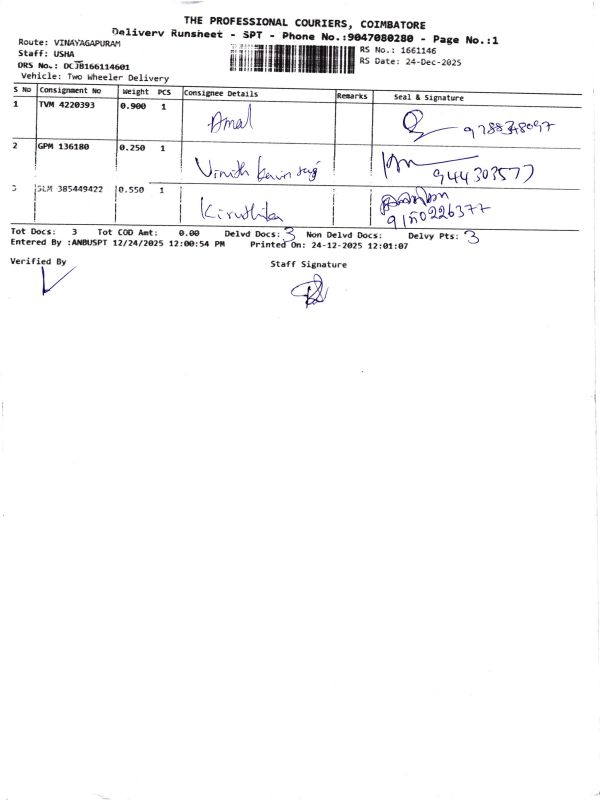 THE PROFESSIONAL COURIERS, COIMBATORE
Delivery Runsheet - SPT - Phone No.:9047080280 - Page No.:1
Route: VINAYAGAPURAM
Staff: USHA
DRS No.: DCJB166114601
Vehicle: Two Wheeler Delivery
RS No.: 1661146
RS Date: 24-Dec-2025
S No Consignment No Weight PCS Consignee Details Remarks Seal & Signature
1 TVM 4220393 0.900 1 Amal 9788348097
2 GPM 136180 0.250 1 Vinith 944303577
3 SLM 385449422 0.550 1 Kiruthika 9150226377
Tot Docs: 3 Tot COD Amt: 0.00 Delvd Docs: 3 Non Delvd Docs: Delvy Pts: 3
Entered By :ANBUSPT 12/24/2025 12:00:54 PM Printed On: 24-12-2025 12:01:07
Verified By Staff Signature